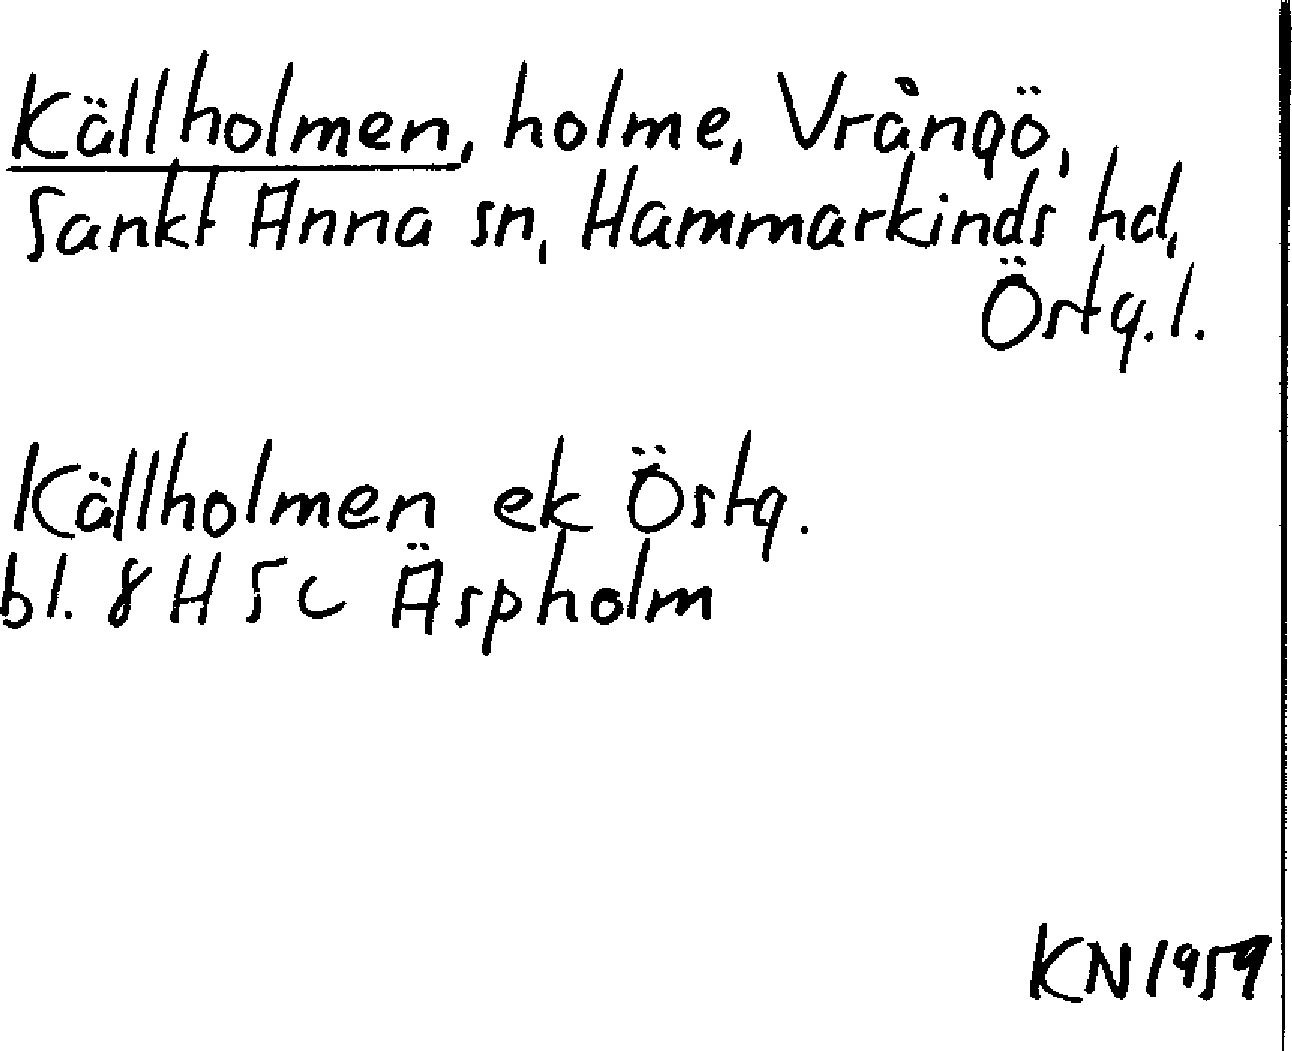 Källholmen, holme, Vrångö,
Sankt Anna sn, Hammarkinds hd,
Östg. l.
Källholmen ek Östg.
bl. 8 H 5 c Äspholm
KN 1959